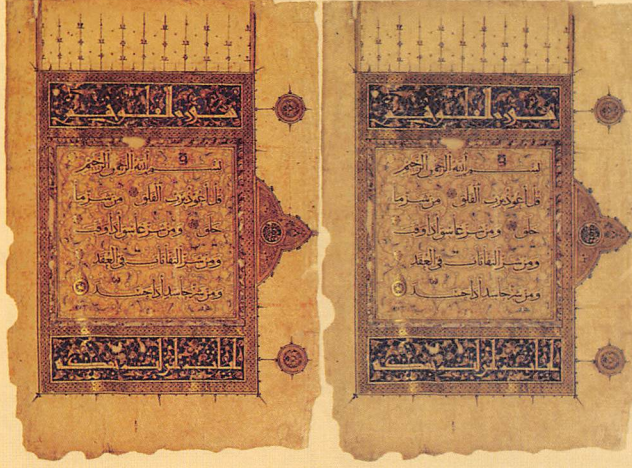 سورة الفلق
بسم الله الرحمن الرحيم
قل اعوذ برب الفلق من شر ما
خلق ومن شر غاسق اذا وقب
ومن شر النفاثات في العقد
ومن شر حاسد اذا حسد
سورة الفلق
بسم الله الرحمن الرحيم
قل اعوذ برب الفلق من شر ما
خلق ومن شر غاسق اذا وقب
ومن شر النفاثات في العقد
ومن شر حاسد اذا حسد